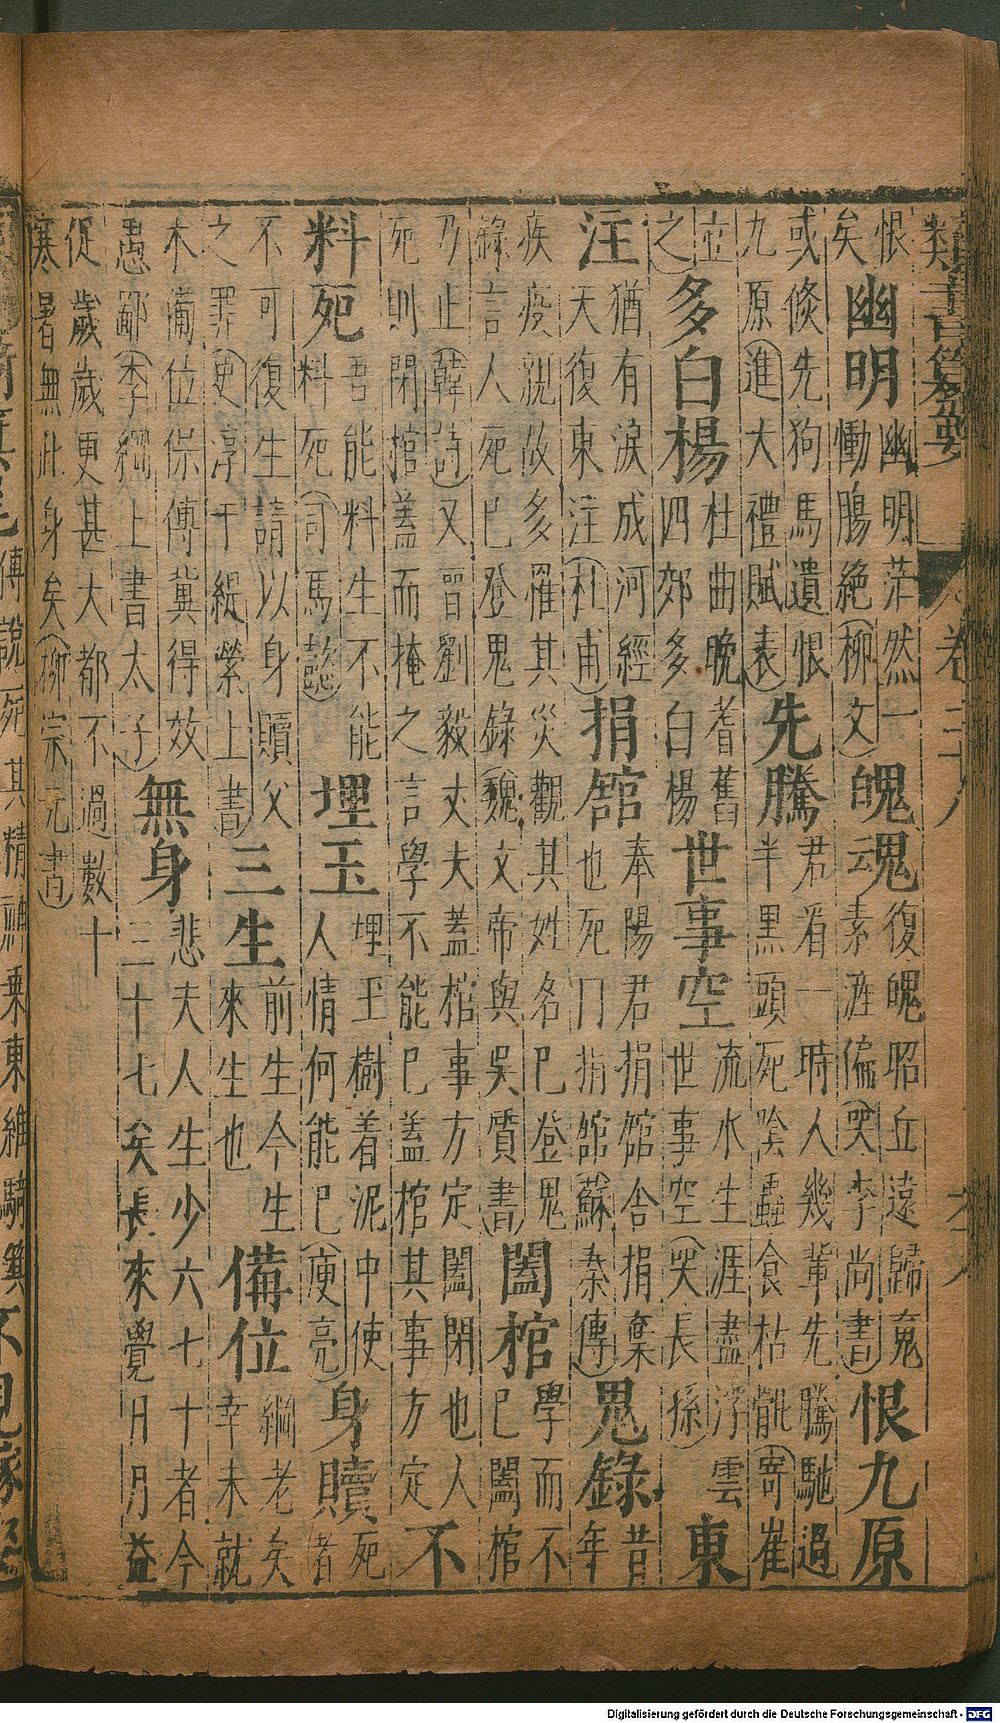 類書纂要 卷三
恨矣幽明幽明茫然一慟腸絶(柳文)魄魂復魄昭丘遠歸魂素滻偏(哭李尚書)恨九原
或倏先狗馬遺恨九原(進大禮賦表)先騰君看一時人幾輩先騰馳過半黒頭死陰蟲食枯骴(寄崔
立之)多白楊杜曲晚耆舊四郊多白楊世事空流水生涯盡浮雲世事空(哭長孫)東
注猶有淚成河經天復東注(杜甫)捐舘奉陽君捐舘舍捐棄也死曰捐舘(蘇秦傳)鬼錄昔年
疾疫親故多罹其災觀其姓名已登鬼錄言人死已登鬼錄(魏文帝與吳質書)闔棺學而不已闔棺
乃止(韓詩)又晉劉毅丈夫蓋棺事方定闔閉也人死則閉棺蓋而掩之言學不能已蓋棺其事方定不
料死吾能料生不能料死(司馬懿)埋玉埋玉樹着泥中使人情何能已(庾亮)身贖死者
不可復生請以身贖父之罪(史淳于緹縈上書)三生前生今生來生也備位綱老矣幸未就
木備位保傅冀得效愚鄙(李綱上書太子)無身悲夫人生少六七十者今三十七矣長來覺日月益
促歲歲更甚大都不過數十寒暑無此身矣(柳宗元書)
傅說死其精神乘東維騎箕
Digitalisierung gefördert durch die Deutsche Forschungsgemeinschaft - DFG